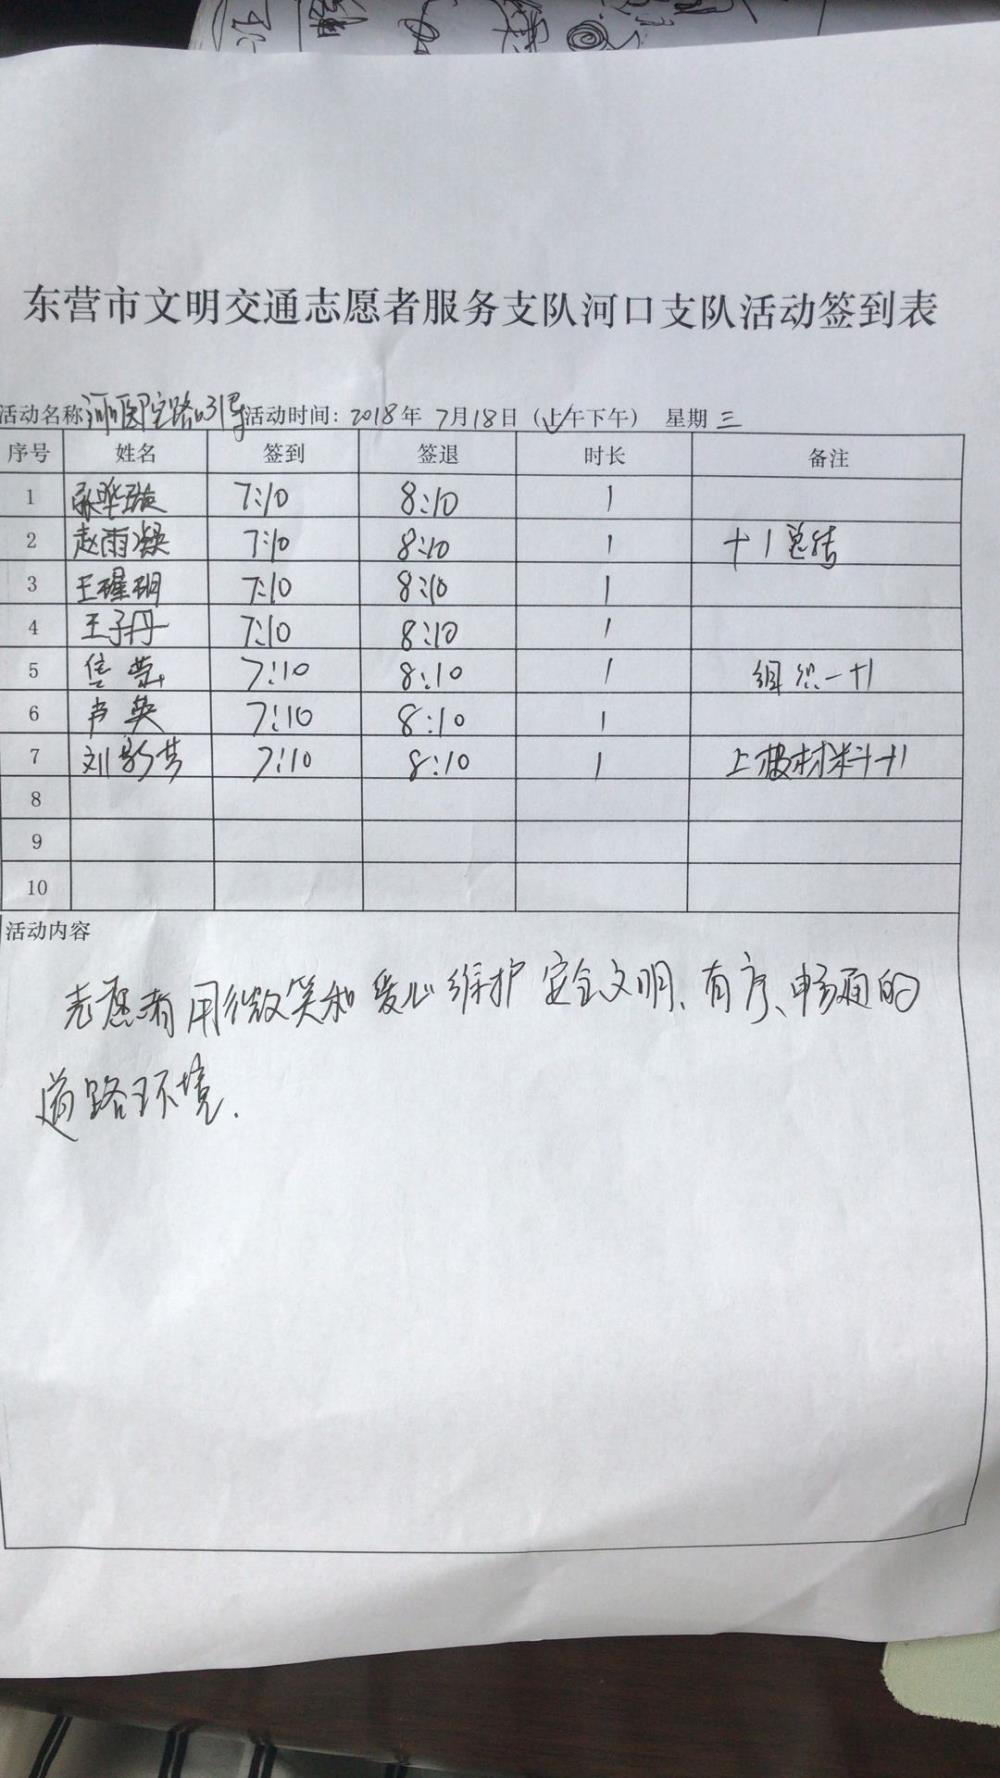 东营市文明交通志愿者服务支队河口支队活动签到表
活动名称 河口医院路口引导 活动时间：2018年 7月18日（上午下午） 星期 三
序号 姓名 签到 签退 时长 备注
1 7:10 8:10 1
2 赵雨凝 7:10 8:10 1 +1总结
3 王瑾玥 7:10 8:10 1
4 王子丹 7:10 8:10 1
5 信荣 7:10 8:10 1 组织-+1
6 卢英 7:10 8:10 1
7 刘彩芸 7:10 8:10 1 上报材料+1
8
9
10
活动内容
志愿者用微笑和爱心维护安全文明、有序、畅通的
道路环境.